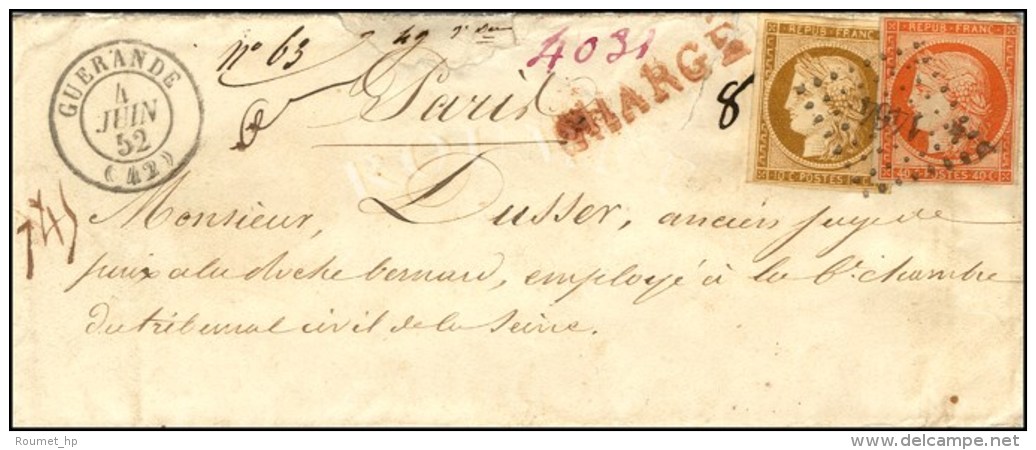 GUERANDE
4
JUIN
52
(42)
n° 63
4031
CHARGÉ
8
Paris
REPUB. FRANC.
10 C. POSTES 10 C.
REPUB. FRANC.
40 C. POSTES 40 C.
Monsieur, Dusser, ancien juge de
paix a la Roche bernard, employé à la 6e chambre
du tribunal civil de la Seine.
Roumet_hp
www.delcampe.net